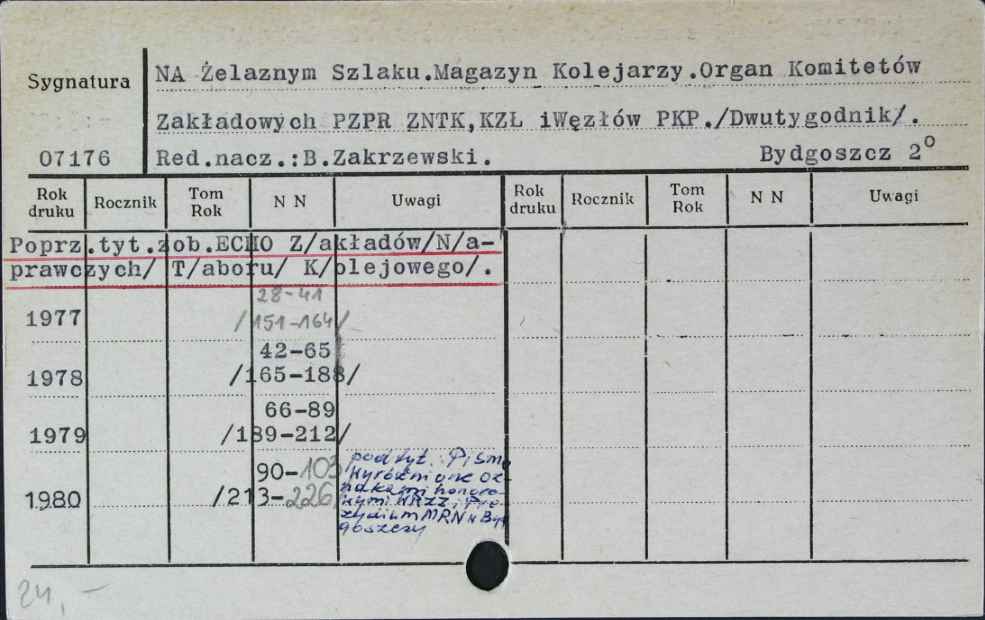 NA Żelaznym Szlaku.Magazyn Kolejarzy.Organ Komitetów
Sygnatura
Zakładowych PZPR ZNTK,KZŁ iWęzłów PKP./Dwutygodnik/.
07176 Red.nacz.:B.Zakrzewski. Bydgoszcz 2°
Rok druku Rocznik Tom Rok N N Uwagi Rok druku Rocznik Tom Rok N N Uwagi
Poprz.tyt.zob.ECHO Z/akładów/N/a-
prawczych/ T/aboru/ K/olejowego/.
28-41
1977 /151-164/
42-65
1978 /165-188/
66-89
1979 /189-212/
90-103
1980 /213-226
podtyt. Pismo
wyróżnione oz-
nakami honoro-
wymi WRZZ i Pre-
zydium MRN w Byd
goszczy
24,-